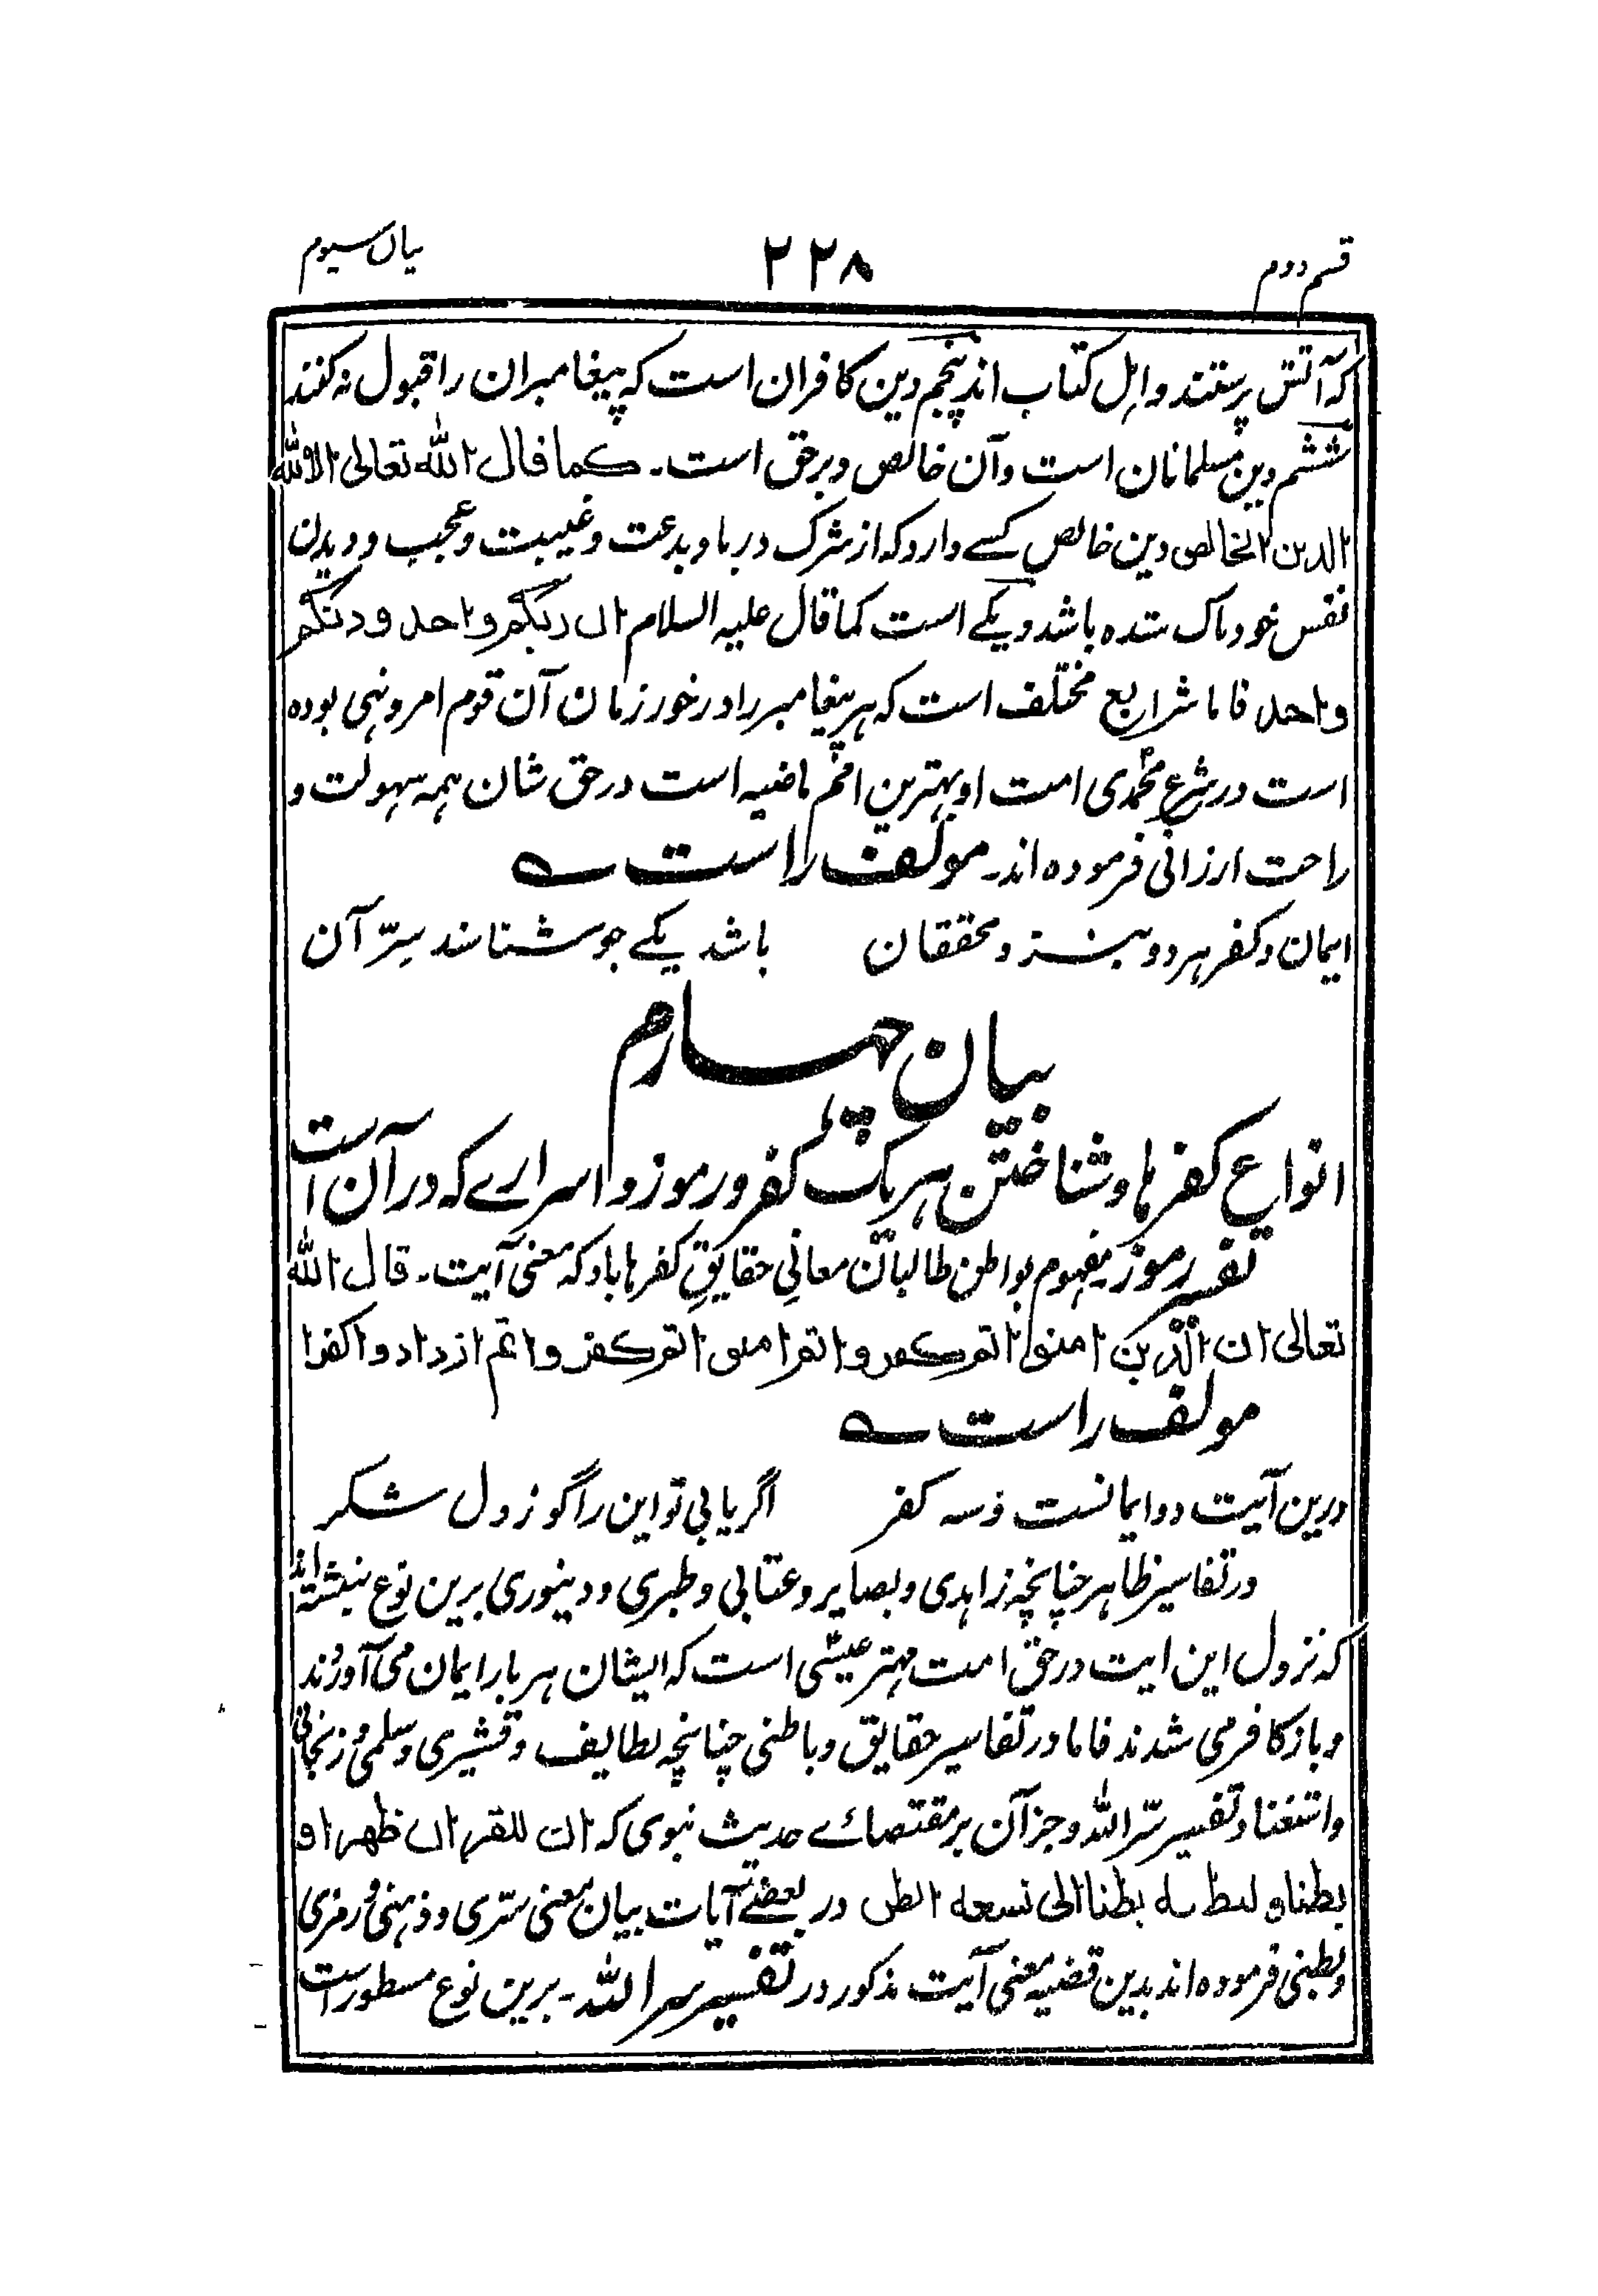 قسم دوم ۲۲۸ بیان سیوم
که آتش پرستند و اہل کتاب اند پنجم دین کافران است که پیغامبران را قبول نه کنند
ششم دین مسلمانان است و آن خالص و برحق است۔ کما قال الله تعالی الا لله
الدین الخالص دین خالص کسے دارد که از شرک و ریا و بدعت و غیبت و عجب و دیدن
نفس خود پاک شده باشد و یکے است کما قال علیہ السلام ان ربکم واحد و دینکم
واحد فاما شرایع مختلف است که ہر پیغامبر را در خور زمان آن قوم امر و نہی بوده
است در شرع محمدی امت او بہترین امم ماضیه است در حق شان ہمه سہولت و
راحت ارزانی فرموده اند۔ مولف راست ے
ایمان و کفر ہر دو بنزد محققان باشد یکے چو شناسند سِرّ آن
بیان چہارم
انواع کفر ہا و شناختن ہریک کفر و رموز و اسرارے که در آن است
تفسیر رموز مفہوم بواطن طالبان معانیِ حقایقِ کفرہا باد که معنی آیت۔ قال الله
تعالی ان الذین امنوا ثم کفروا ثم امنوا ثم کفروا ثم ازدادوا کفرا
مولف راست ے
درین آیت دو ایمانست و سه کفر اگر یابی تو این را گو ز دل شکر
در تفاسیر ظاہر چنانچه زاہدی و بصایر و عتابی و طبری و دینوری برین نوع نبشته اند
که نزول این ایت در حق امت مہتر عیسیٰ است که ایشان ہر بار ایمان می آوردند
و باز کافر می شدند فاما در تفاسیر حقایق و باطنی چنانچه لطایف و قشیری و سلمی و زنجانی
و استغنا و تفسیر سّر الله و جز آن بر مقتضائے حدیث نبوی که ان للقران ظهرا و
بطنا و لبطنه بطنا الی تسعه ابطن در بعضے آیات بیان معنی سّری و ذہنی و رمزی
و بطنی فرموده اند بدین قضیه معنی آیت مذکور در تفسیر سر الله۔ برین نوع مسطور است